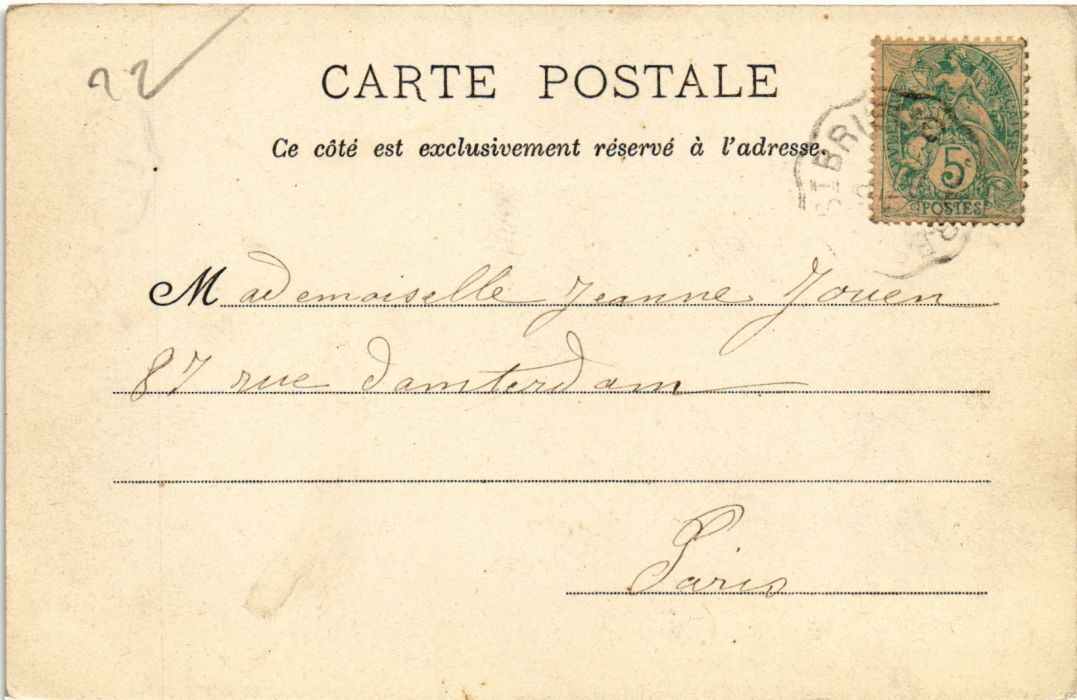 22
CARTE POSTALE
Ce côté est exclusivement réservé à l'adresse.
5c
POSTES
Mademoiselle Jeanne Jouen
87 rue damsterdam
Paris